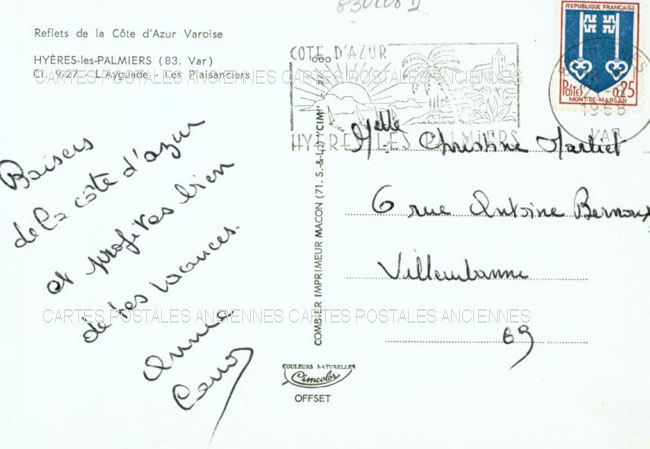 830208 D
Reflets de la Côte d'Azur Varoise
HYÈRES-les-PALMIERS (83. Var)
Cl. 9-27 - L'Ayguade - Les Plaisanciers
CARTES POSTALES ANCIENNES CARTES POSTALES ANCIENNES
COTE D'AZUR
HYERES LES PALMIERS
REPUBLIQUE FRANÇAISE
POSTES 0,25
MONT-DE-MARSAN
1968
VAR
Baisers
de la côte d'azur
et profites bien
de tes vacances.
Annie
COMBIER IMPRIMEUR MACON (71. S.-&-L.) "CIM"
Melle Christine
6 rue Antoine
Villeurbanne
69
CARTES POSTALES ANCIENNES CARTES POSTALES ANCIENNES
COULEURS NATURELLES
Cimcolor
OFFSET